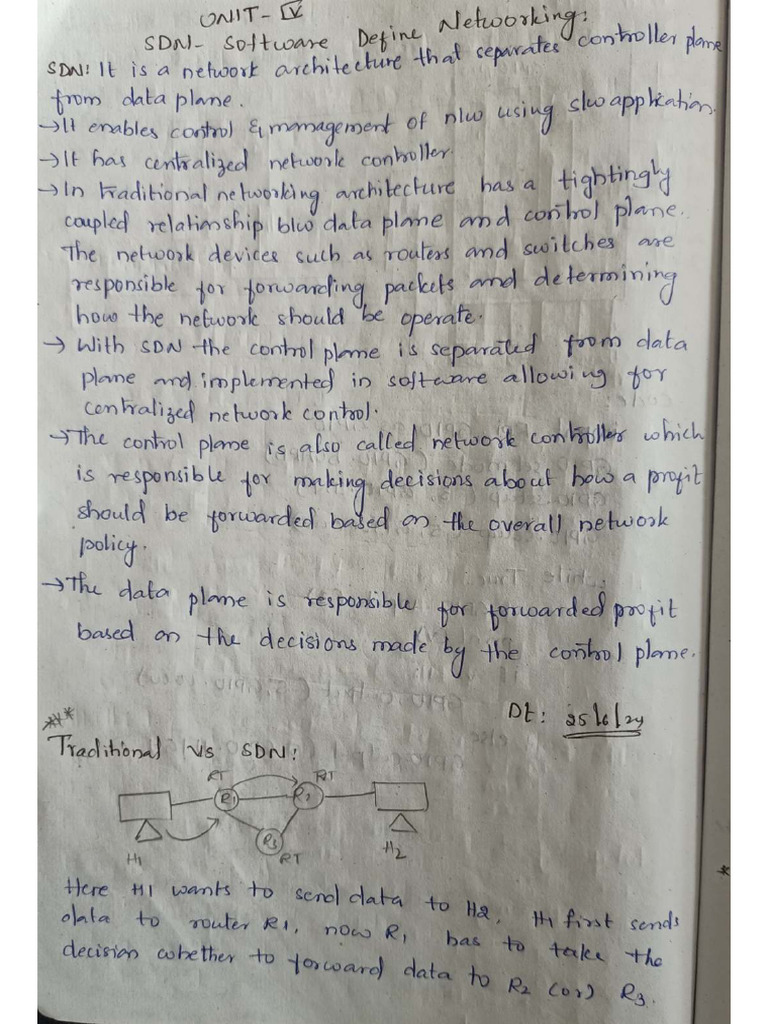 UNIT-IV
SDN- Software Define Networking:
SDN: It is a network architecture that separates controller plane
from data plane.
→It enables control & management of n/w using s/w application.
→It has centralized network controller.
→In traditional networking architecture has a tightingly
coupled relationship b/w data plane and control plane.
The network devices such as routers and switches are
responsible for forwarding packets and determining
how the network should be operate.
→ With SDN the control plane is separated from data
plane and implemented in software allowing for
centralized network control.
→The control plane is also called network controller which
is responsible for making decisions about how a profit
should be forwarded based on the overall network
policy.
→The data plane is responsible for forwarded profit
based on the decisions made by the control plane.
Dt: 25/6/24
***
Traditional Vs SDN:
RT RT
R1 R2
R3
H1 RT H2
Here H1 wants to send data to H2. H1 first sends
data to router R1, now R1 has to take the
decision whether to forward data to R2 (or) R3.